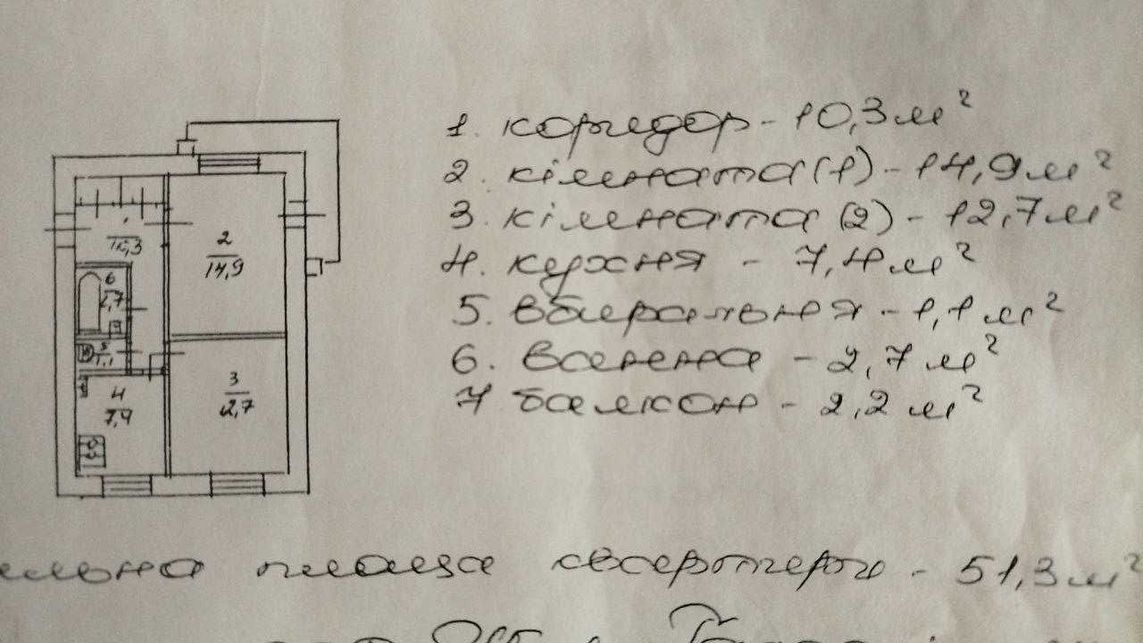 1. коридор - 10,3 м²
2. кімната (1) - 14,9 м²
3. кімната (2) - 12,7 м²
4. кухня - 7,4 м²
5. вбиральня - 1,1 м²
6. ванна - 2,7 м²
7 балкон - 2,2 м²
1
10,3
2
14,9
6
2,7
5
1,1
3
12,7
4
7,4
льна площа квартири - 51,3 м²